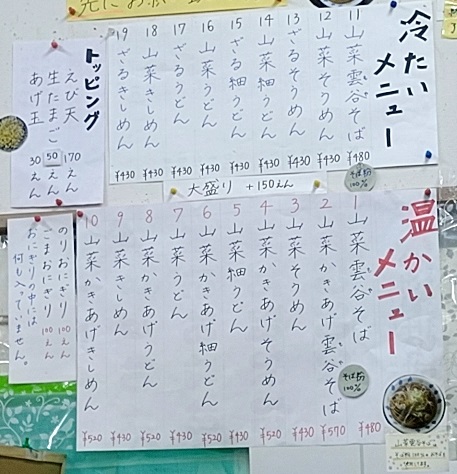 冷たい
メニュー
11 山菜雲谷そば ¥480
12 山菜そうめん ¥430
13 ざるそうめん ¥430
14 山菜細うどん ¥430
15 ざる細うどん ¥430
16 山菜うどん ¥430
17 ざるうどん ¥430
18 山菜きしめん ¥430
19 ざるきしめん ¥430
そば粉
100%
トッピング
えび天 170えん
生たまご 50えん
あげ玉 30えん
大盛り +150えん
温かい
メニュー
1 山菜雲谷そば ¥480
2 山菜かきあげ雲谷そば ¥570
3 山菜そうめん ¥430
4 山菜かきあげそうめん ¥520
5 山菜細うどん ¥430
6 山菜かきあげ細うどん ¥520
7 山菜うどん ¥430
8 山菜かきあげうどん ¥520
9 山菜きしめん ¥430
10 山菜かきあげきしめん ¥520
そば粉
100%
のりおにぎり 100えん
ごまおにぎり 100えん
おにぎりの中には
何も入っていません。
山菜雲谷そば